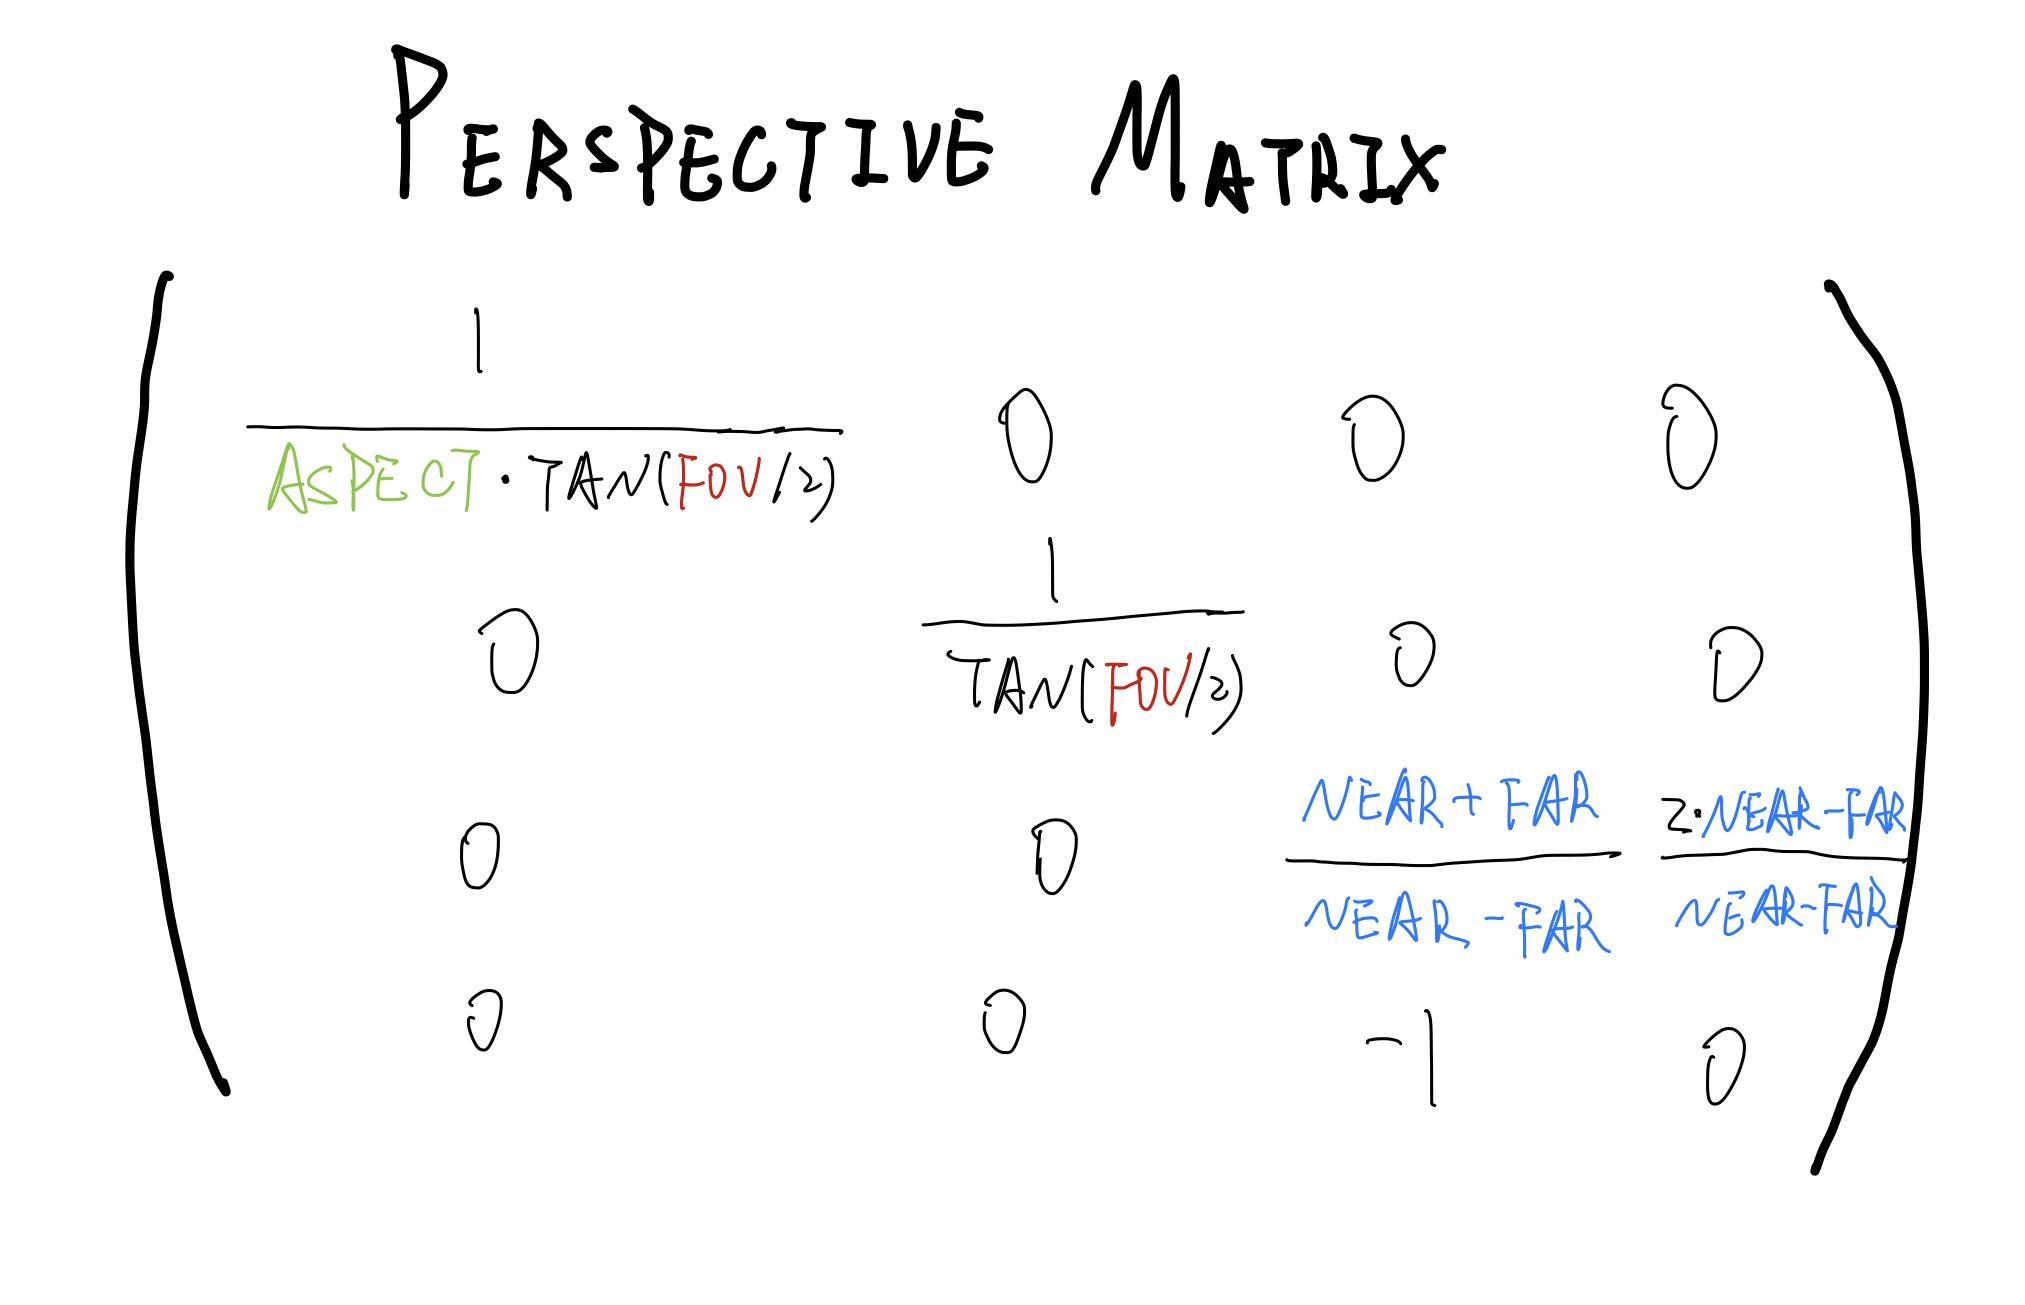 PERSPECTIVE MATRIX
1
ASPECT · TAN(FOV/2) 0 0 0
1
0 TAN(FOV/2) 0 0
NEAR + FAR 2·NEAR-FAR
0 0 NEAR - FAR NEAR-FAR
0 0 -1 0